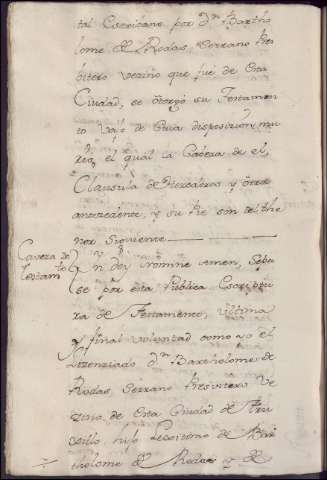 tal Escrivano por dn Bartho
lome de Rodas, Serrano Pres
bitero vezino que fué de esta
Ciudad, se otorgó su Testamen
to vajo de cuia disposicion mu
rio, el qual la Cavesa de el,
Clausula de Herederos y otra
antecedente, y su Pie son del the
nor Siguiente
Cavesa de
Testamto
Yn dey nomine Amen, Sepa
se por esta Publica Escriptu
ra de Testamento, ultima
y final voluntad como yo el
Lizenziado dn Bartholome de
Rodas, Serrano Presvitero Ve
zino de esta Ciudad de Tru
xillo hijo Lexitimo de Bar
tholome de Rodas y de